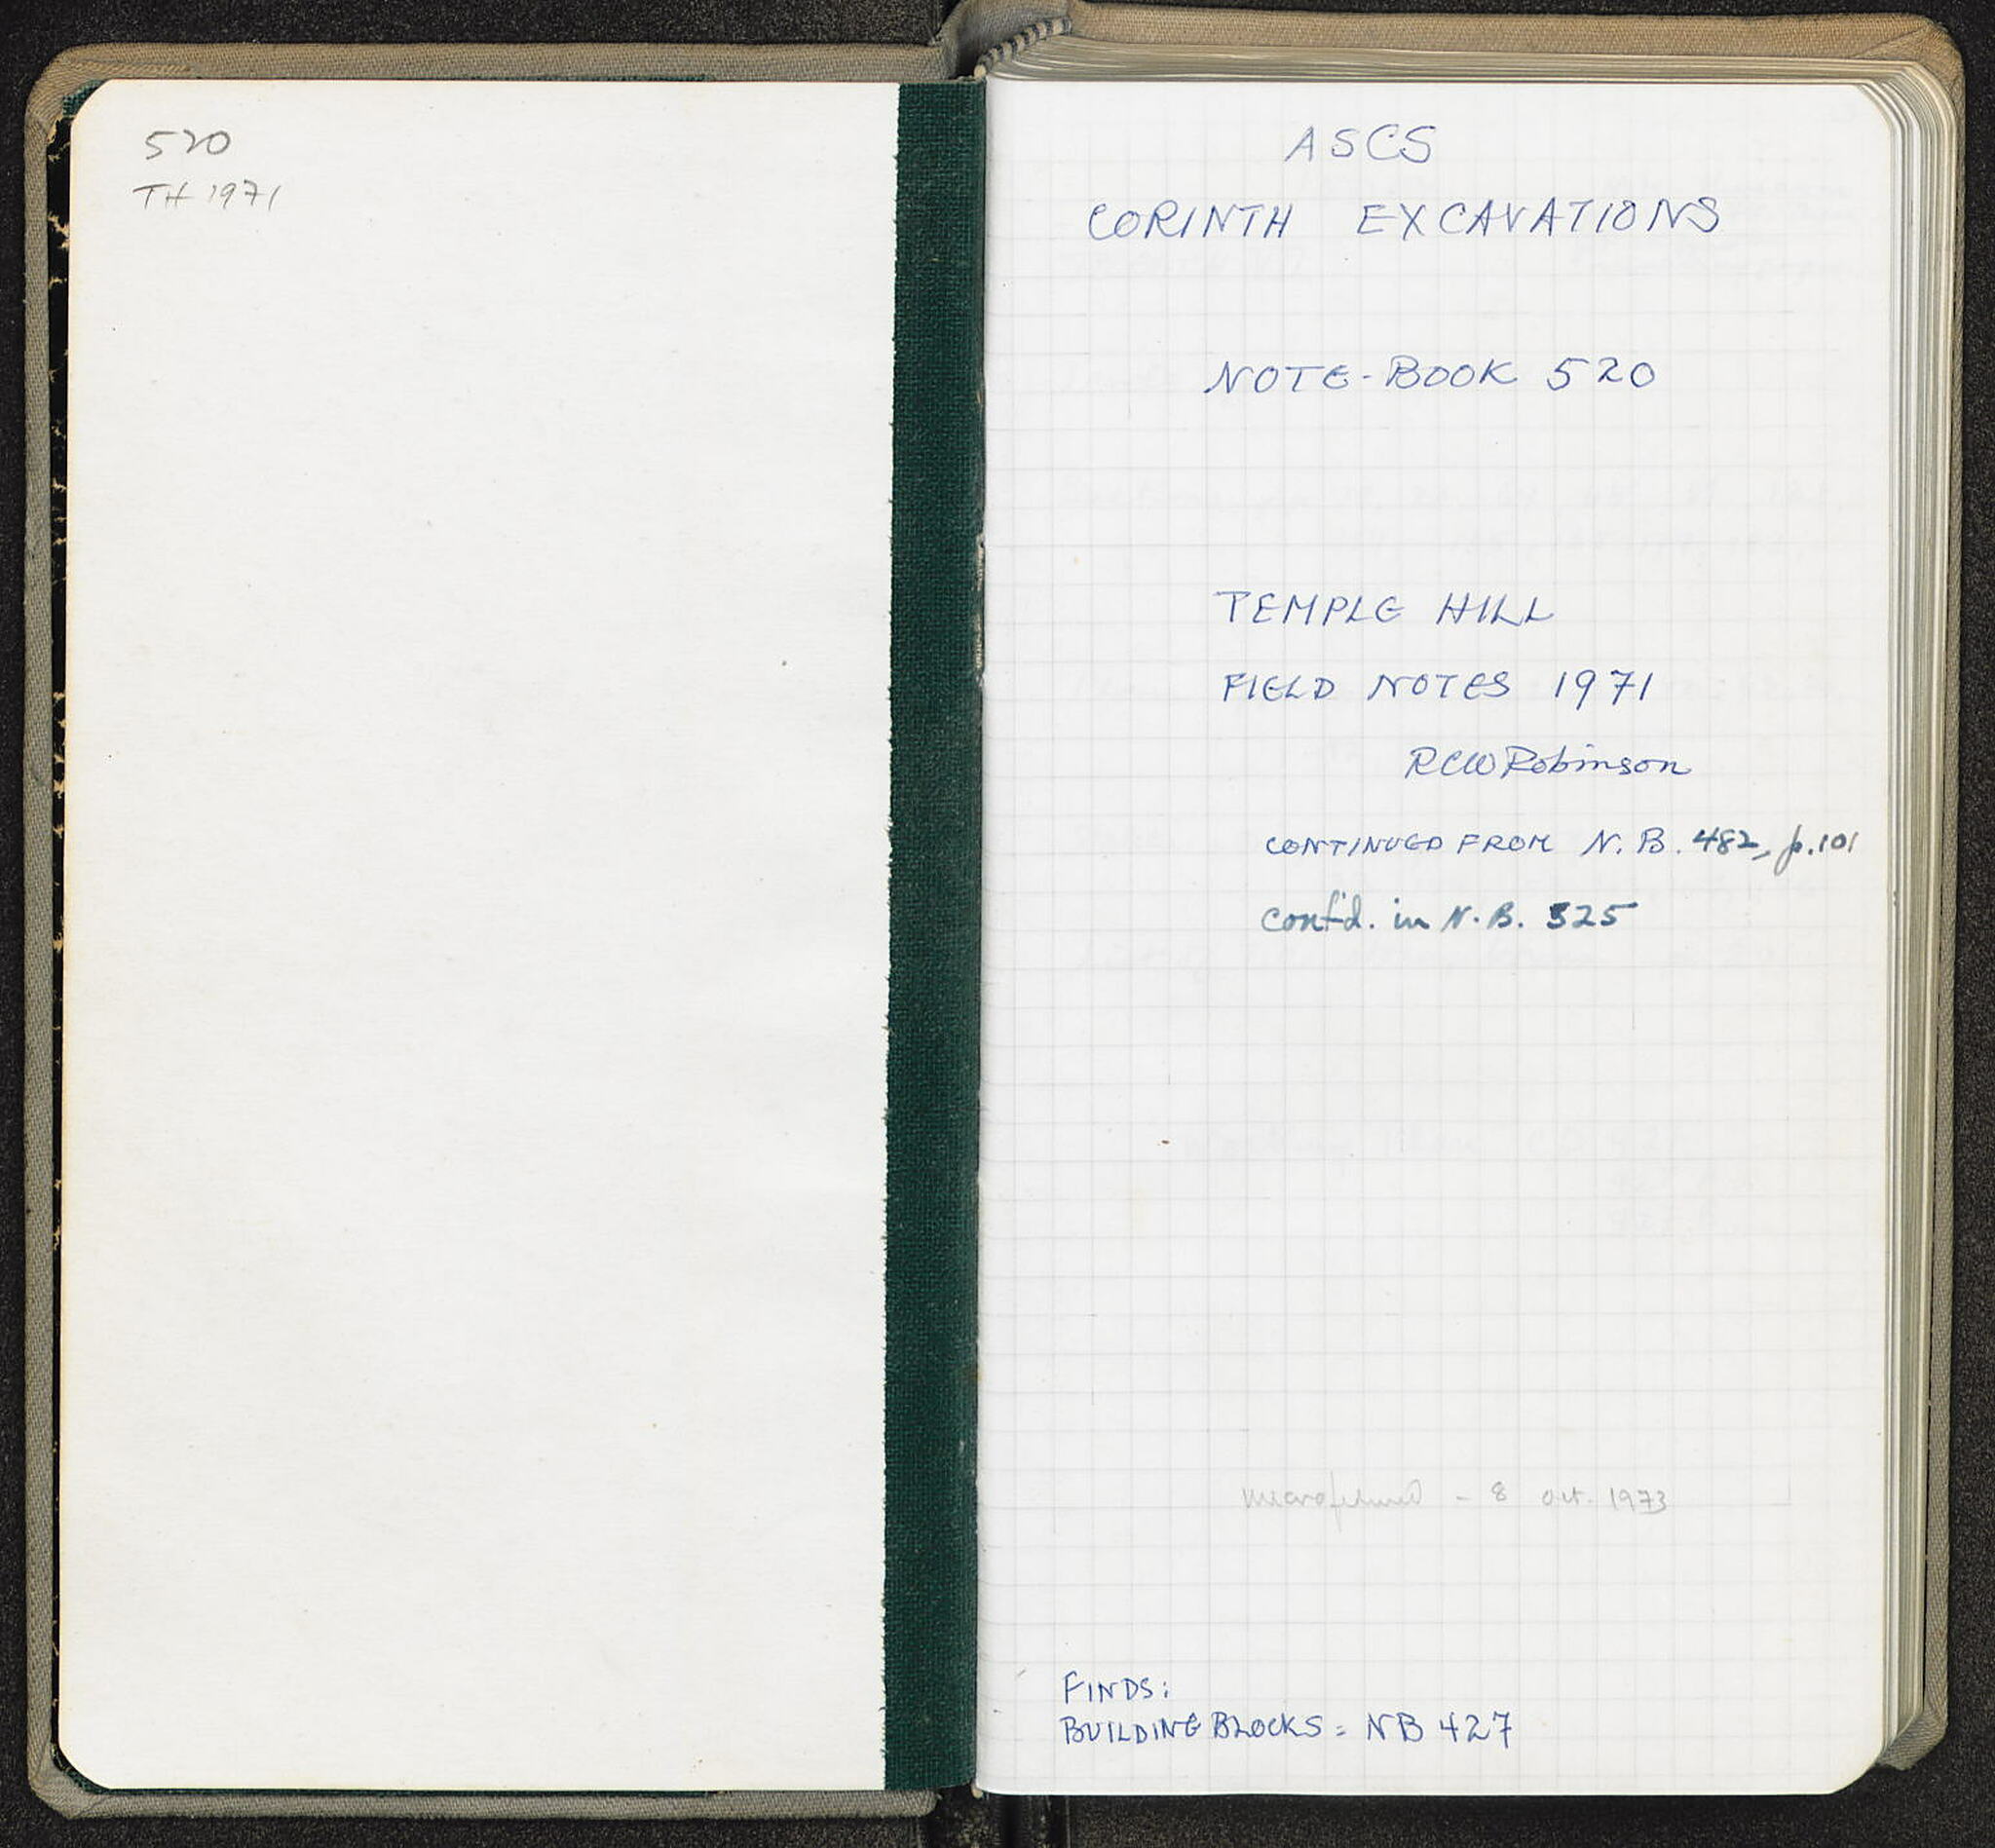 520
TH 1971
ASCS
CORINTH EXCAVATIONS
NOTE-BOOK 520
TEMPLE HILL
FIELD NOTES 1971
RCWRobinson
CONTINUED FROM N.B. 482, p.101
cont'd. in N.B. 525
microfilmed - 8 Oct. 1973
FINDS:
BUILDING BLOCKS = NB 427